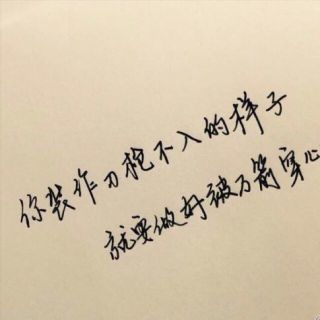 你装作刀枪不入的样子
就要做好被万箭穿心